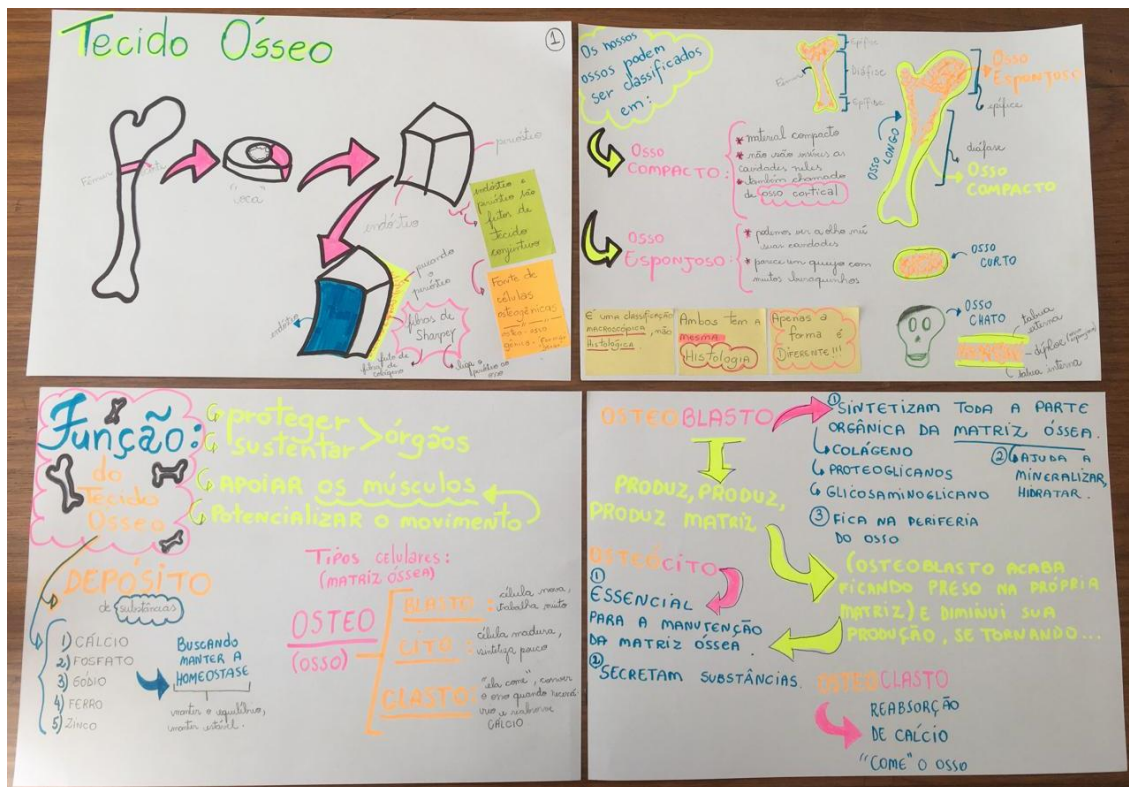 Tecido Ósseo
1
Fêmur
"oca"
periósteo
endósteo
endósteo e
periósteo são
feitos de
tecido
conjuntivo
Fonte de
células
osteogênicas
puxando
o
periósteo
fibras de
Sharpey
feito de
fibras de
colágeno
liga o
periósteo ao
osso
endósteo
Os nossos
ossos podem
ser classificados
em:
OSSO
COMPACTO:
* material compacto
* não são visíveis as
cavidades neles
* também chamado
de osso cortical
OSSO
ESPONJOSO:
* podemos ver a olho nú
suas cavidades
* parece um queijo com
muitos buraquinhos
É uma classificação
MACROSCÓPICA, não
Histológica.
Ambos tem a
mesma
Histologia
Apenas a
forma é
DIFERENTE!!!
Fêmur
Epífise
Diáfise
Epífise
OSSO
ESPONJOSO
epífice
OSSO
LONGO
diáfase
OSSO
COMPACTO
OSSO
CURTO
OSSO
CHATO
tabua
externa
díploe
tabua interna
Função:
do
Tecido
Ósseo
proteger
sustentar
órgãos
APOIAR os músculos
POTENCIALIZAR O MOVIMENTO
DEPÓSITO
de substâncias
1) CÁLCIO
2) FOSFATO
3) SÓDIO
4) FERRO
5) ZINCO
BUSCANDO
MANTER A
HOMEOSTASE
manter o equilíbrio,
manter estável.
Tipos celulares:
(MATRIZ ÓSSEA)
OSTEO
(OSSO)
BLASTO: célula nova,
trabalha muito
CITO: célula madura,
sintetiza pouco
CLASTO: "ela come",
o osso quando
CÁLCIO
OSTEOBLASTO
PRODUZ, PRODUZ,
PRODUZ MATRIZ
① SINTETIZAM TODA A PARTE
ORGÂNICA DA MATRIZ ÓSSEA.
COLÁGENO
PROTEOGLICANOS
GLICOSAMINOGLICANO
② AJUDA A
MINERALIZAR,
HIDRATAR.
③ FICA NA PERIFERIA
DO OSSO
(OSTEOBLASTO ACABA
FICANDO PRESO NA PRÓPRIA
MATRIZ) E DIMINUI SUA
PRODUÇÃO, SE TORNANDO...
OSTEÓCITO
① ESSENCIAL
PARA A MANUTENÇÃO
DA MATRIZ ÓSSEA.
② SECRETAM SUBSTÂNCIAS.
OSTEOCLASTO
REABSORÇÃO
DE CALCIO
"COME" O OSSO